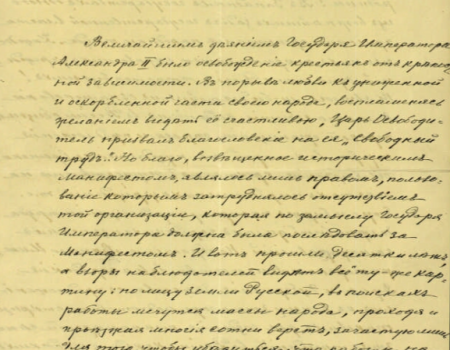 Величайшимъ даянiемъ Государя Императора
Александра II было освобожденiе крестьянъ отъ крѣпост-
ной зависимости. Въ порывѣ любви къ униженной
и оскорбленной части своего народа,
желанiемъ видѣть её счастливою, Царь Освободи-
тель призвалъ благословенiе на ея „свободный
трудъ“. Но благо, возвѣщенное историческимъ
Манифестомъ, являлось лишь правомъ, пользо-
ванiе которымъ затруднялось отсутствiемъ
той организацiи, которая по замыслу Государя
Императора должна была послѣдовать за
Манифестомъ. И вотъ прошли десятки лѣтъ,
а взоры наблюдателей видятъ всё ту-же кар-
тину: по лицу земли Русской, въ поискахъ
работы мечутся массы народа, проходя и
проѣзжая многiя сотни верстъ, зачастую лишь
для того чтобы убѣдиться, что работы на